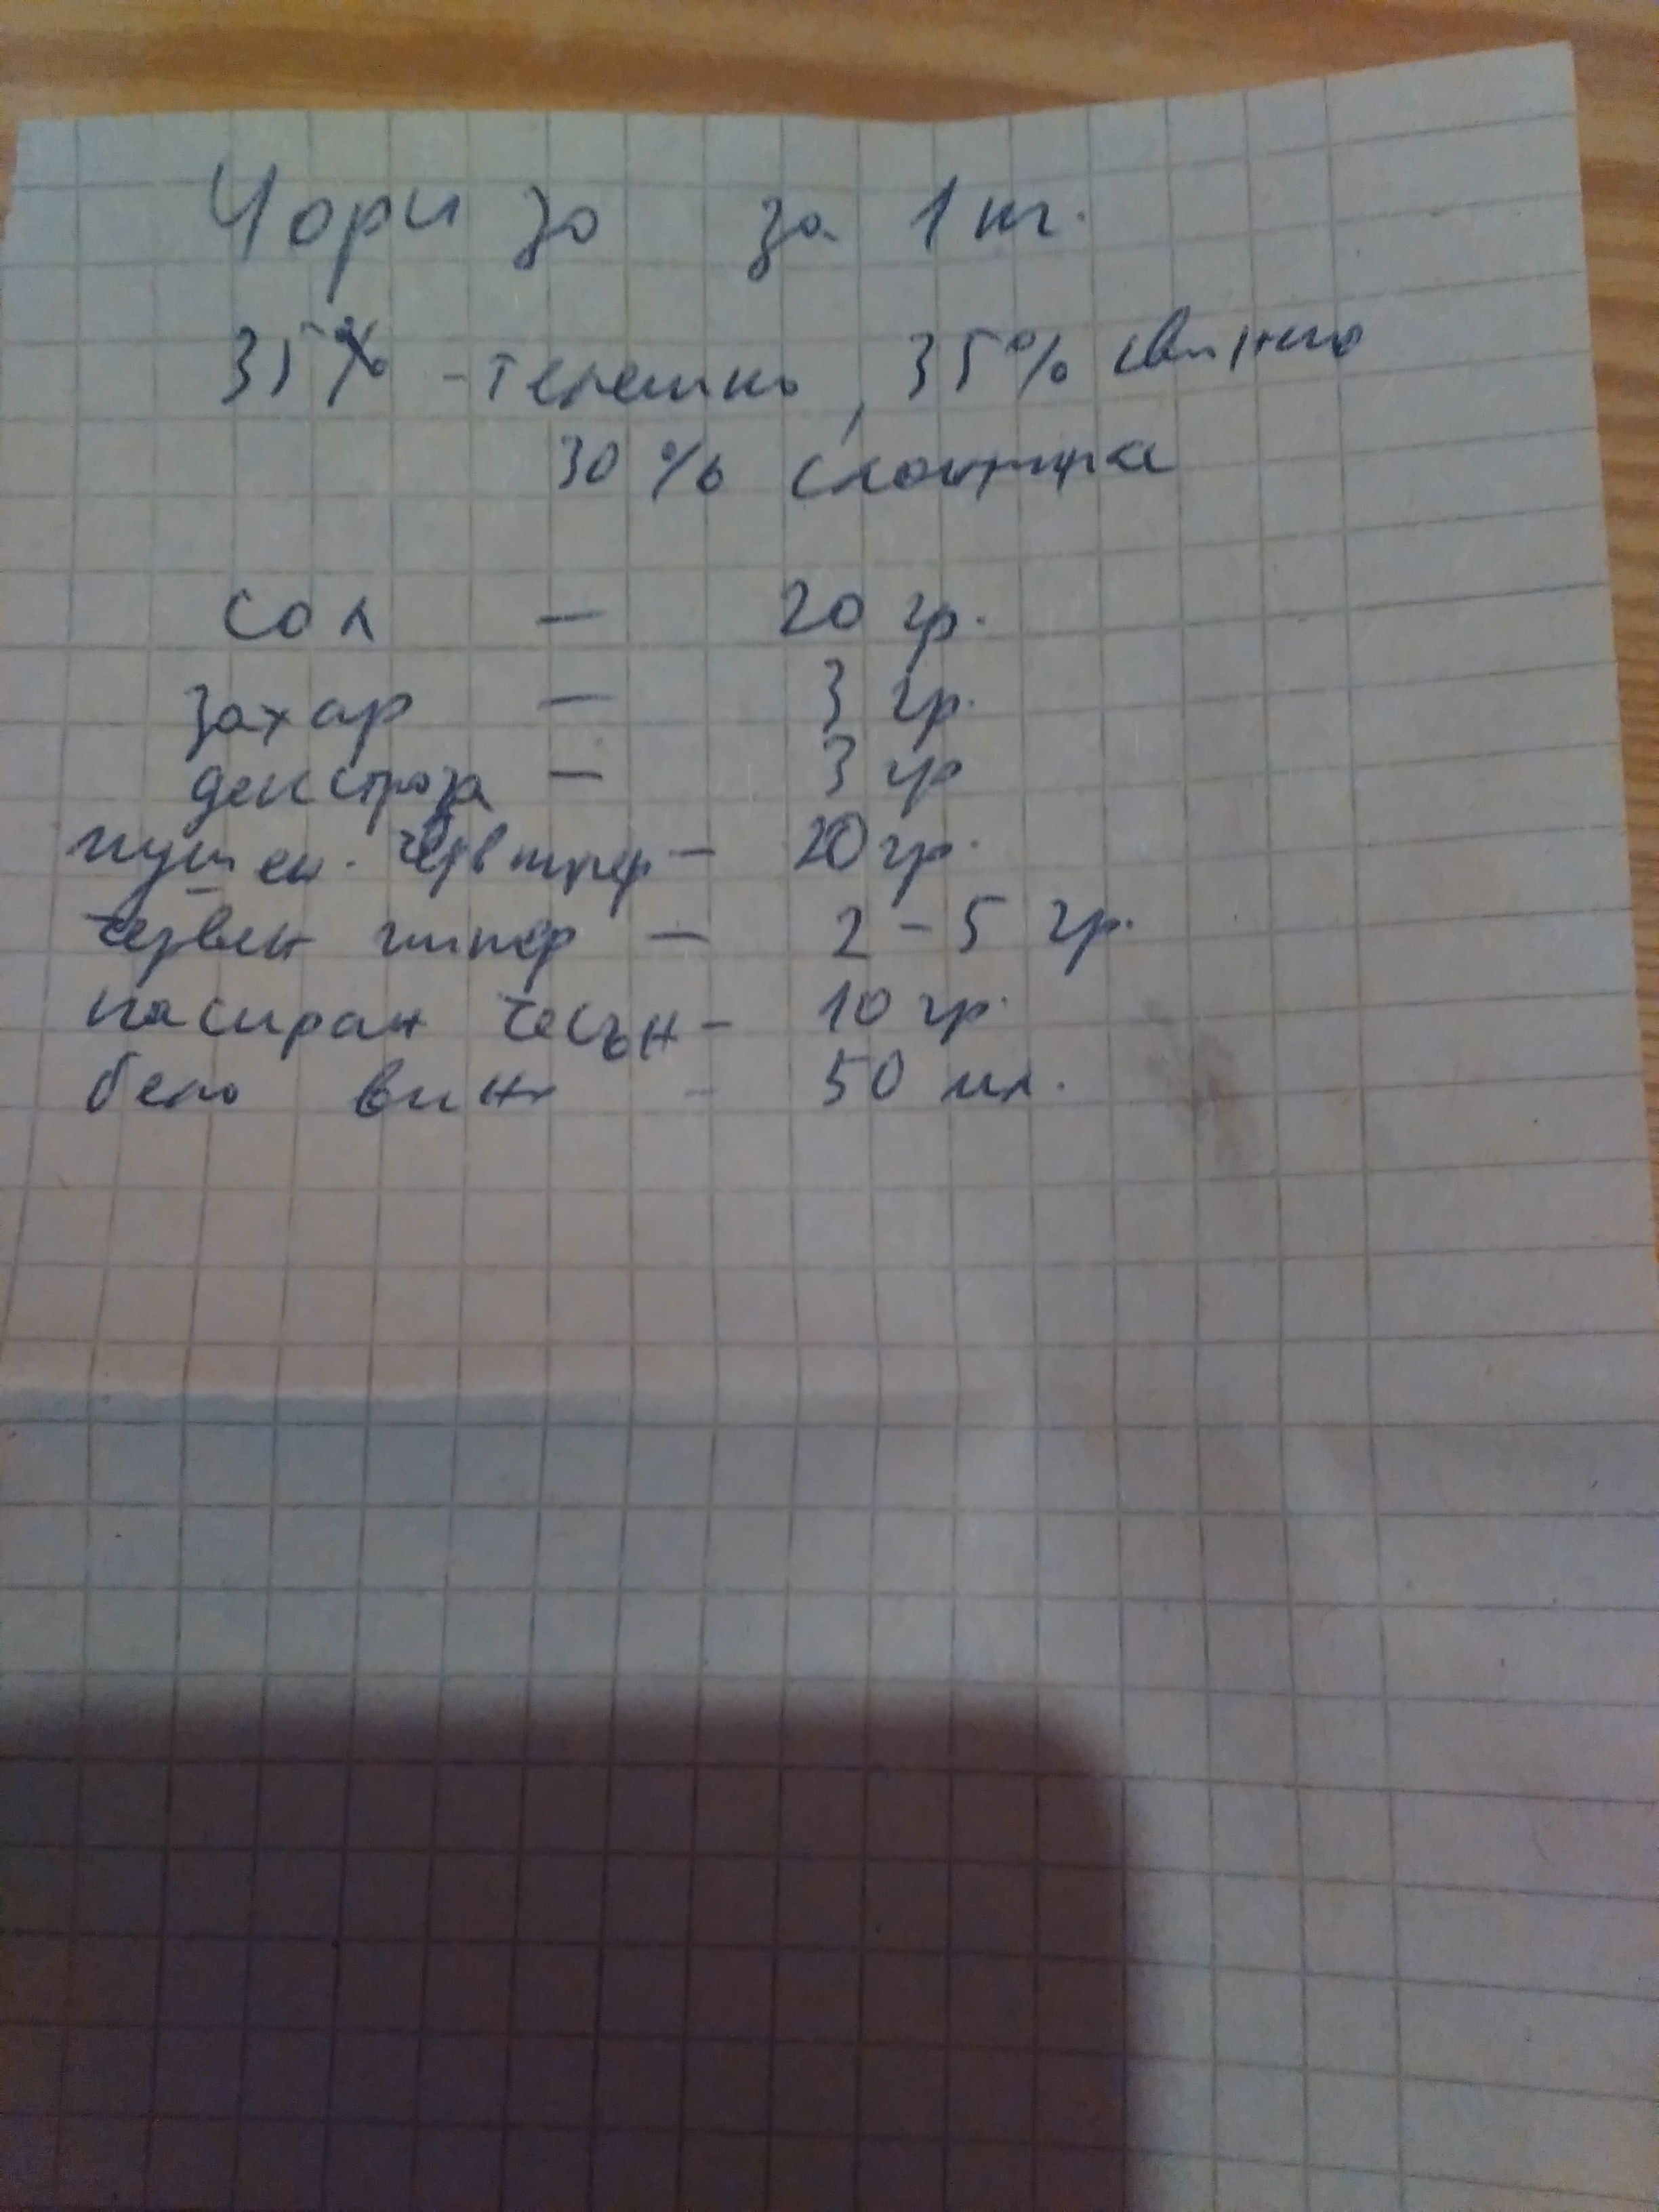 Чоризо за 1 кг.
35% - телешко, 35% свинско
30% сланина
сол - 20 гр.
захар - 3 гр.
декстроза - 3 гр
пушен. черв пипер - 20 гр.
червен пипер - 2 - 5 гр.
пасиран чесън - 10 гр.
бело вино - 50 мл.